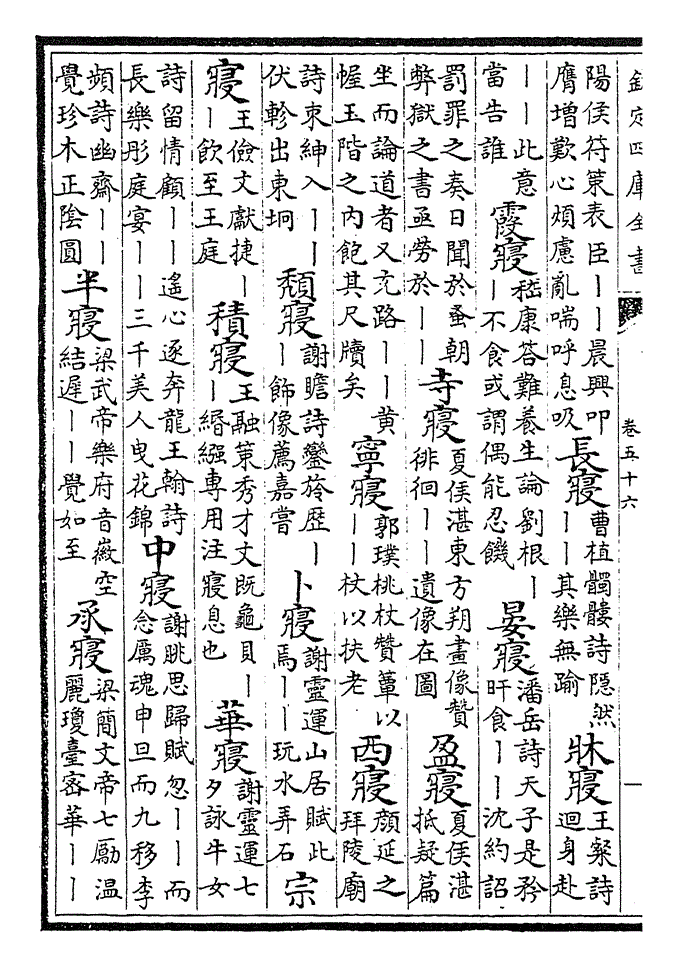 欽定四庫全書 卷五十六 一
陽侯符策表臣丨丨晨興叩
膺增歎心煩慮亂喘呼息吸
長寢
曹植髑髏詩隱然
丨丨其樂無踰
牀寢
王粲詩
迴身赴
丨丨此意
當告誰
霞寢
嵇康答難養生論劉根丨
丨不食或謂偶能忍饑
晏寢
潘岳詩天子是矜
旰食丨丨沈約詔
罰罪之奏日聞於蚤朝
弊獄之書亟勞於丨丨
寺寢
夏侯湛東方朔畫像贊
徘徊丨丨遺像在圖
盈寢
夏侯湛
抵疑篇
坐而論道者又充路丨丨黄
幄玉階之内飽其尺牘矣
寧寢
郭璞桃杖贊蕇以
丨丨杖以扶老
西寢
顔延之
拜陵廟
詩束紳入丨丨
伏軫出東坰
頹寢
謝瞻詩鑾旍歷丨
丨飾像薦嘉嘗
卜寢
謝靈運山居賦此
焉丨丨玩水弄石
宗
寢
王儉文獻捷丨
丨飲至王庭
積寢
王融策秀才文既龜貝丨
丨緡繈專用注寢息也
華寢
謝靈運七
夕詠牛女
詩留情顧丨丨遙心逐奔龍王翰詩
長樂彤庭宴丨丨三千美人曳花錦
中寢
謝朓思歸賦忽丨丨而
念厲魂申旦而九移李
頻詩幽齋丨丨
覺珍木正陰圓
半寢
梁武帝樂府音徽空
結遲丨丨覺如至
承寢
梁簡文帝七勵温
麗瓊臺密華丨丨